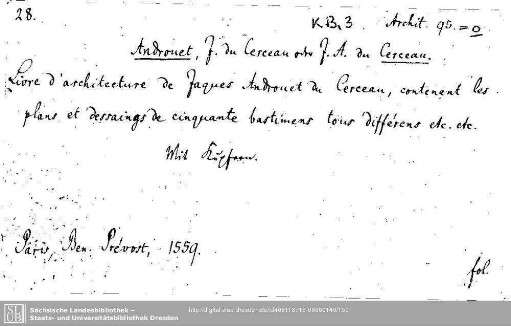 28. K.B.3 Archit. 95.=0
Androuet, J. du Cerceau oder J. A. du Cerceau.
Livre d'architecture de Jaques Androuet du Cerceau, contenant les
plans et dessaings de cinquante bastimens tous différens etc. etc.
Mit Kupfern.
Paris, Ben. Prévost, 1559.
fol.
Sächsische Landesbibliothek –
Staats- und Universitätsbibliothek Dresden